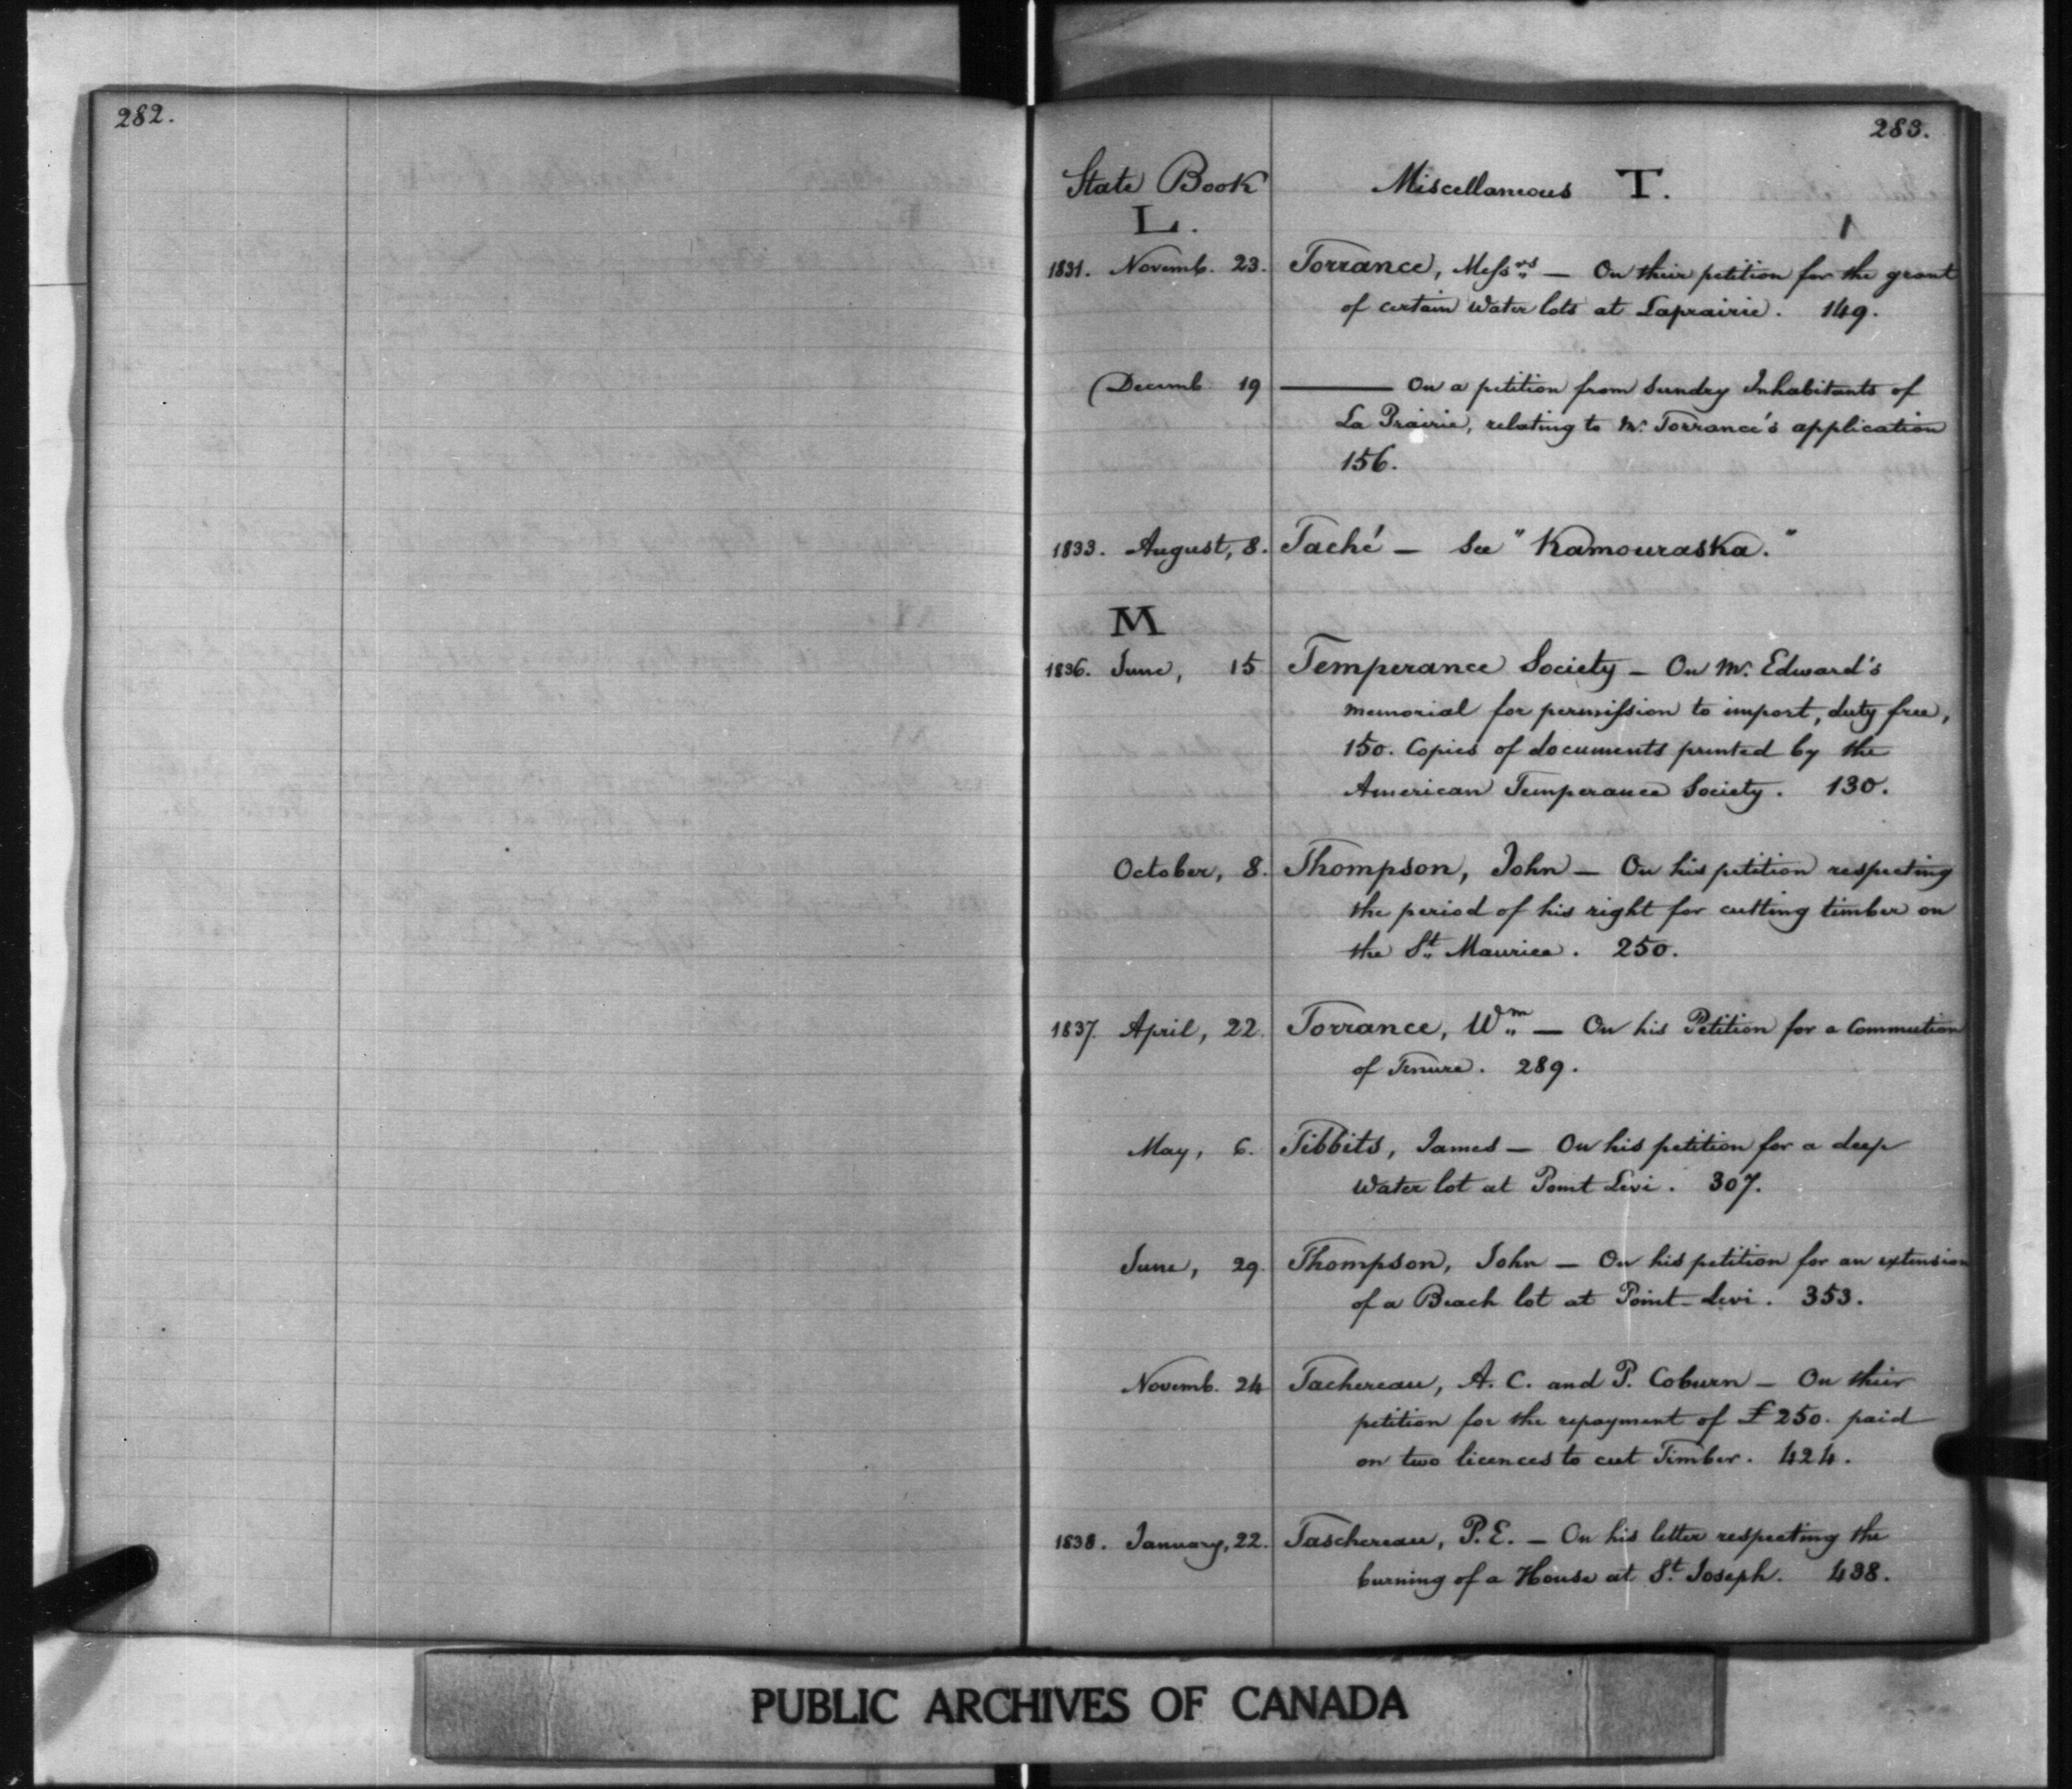 282.
283.
State Book Miscellaneous T.
L.
1831. Novemb. 23. Torrance, Messrs — On their petition for the grant
of certain water lots at Laprairie. 149.
Decemb. 19 ——— On a petition from Sundry Inhabitants of
La Prairie, relating to Mr. Torrance's application
156.
1833. August, 8. Taché — See "Kamouraska."
M
1836. June, 15 Temperance Society — On Mr. Edward's
memorial for permission to import, duty free,
150. Copies of documents printed by the
American Temperance Society. 130.
October, 8. Thompson, John — On his petition respecting
the period of his right for cutting timber on
the St. Maurice. 250.
1837. April, 22. Torrance, Wm — On his Petition for a Commution
of Tenure. 289.
May, 6. Tibbits, James — On his petition for a deep
water lot at Point Levi. 307.
June, 29. Thompson, John — On his petition for an extension
of a Beach lot at Point-Levi. 353.
Novemb. 24 Tachereau, A. C. and P. Coburn — On their
petition for the repayment of £250. paid
on two licences to cut Timber. 424.
1838. January, 22. Taschereau, P. E. — On his letter respecting the
burning of a House at St. Joseph. 438.
PUBLIC ARCHIVES OF CANADA